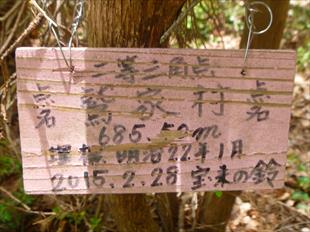 二等三角点
点名 鷲家村 点名
685.52m
埋標 明治22年1月
2015.2.28 宝来の鈴